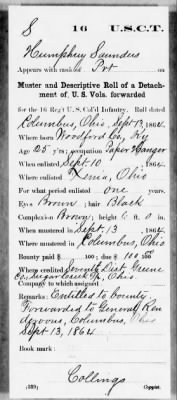 S 16 U.S.C.T.
Humphrey Saunders
Appears with rank of Pvt on
Muster and Descriptive Roll of a Detach-
ment of U. S. Vols. forwarded
for the 16 Reg't U. S. Col'd Infantry. Roll dated
Columbus, Ohio, Sept 13, 1864.
Where born Woodford Co, Ky
Age 25 y'rs; occupation Paper Hanger
When enlisted Sept. 10, 1864.
Where enlisted Xenia, Ohio
For what period enlisted one years.
Eyes Brown; hair Black
Complexion Brown; height 6 ft. 0 in.
When mustered in Sept. 13, 1864.
Where mustered in Columbus, Ohio
Bounty paid $ 100; due $ 100 100
Where credited Seventh Dist. Greene
Co, Sugarcreek Tp Ohio
Company to which assigned
Remarks: Entitled to Bounty.
Forwarded to General Ren
dezvous, Columbus, Ohio
Sept 13, 1864.
Book mark:
Collings
(339) Copyist.